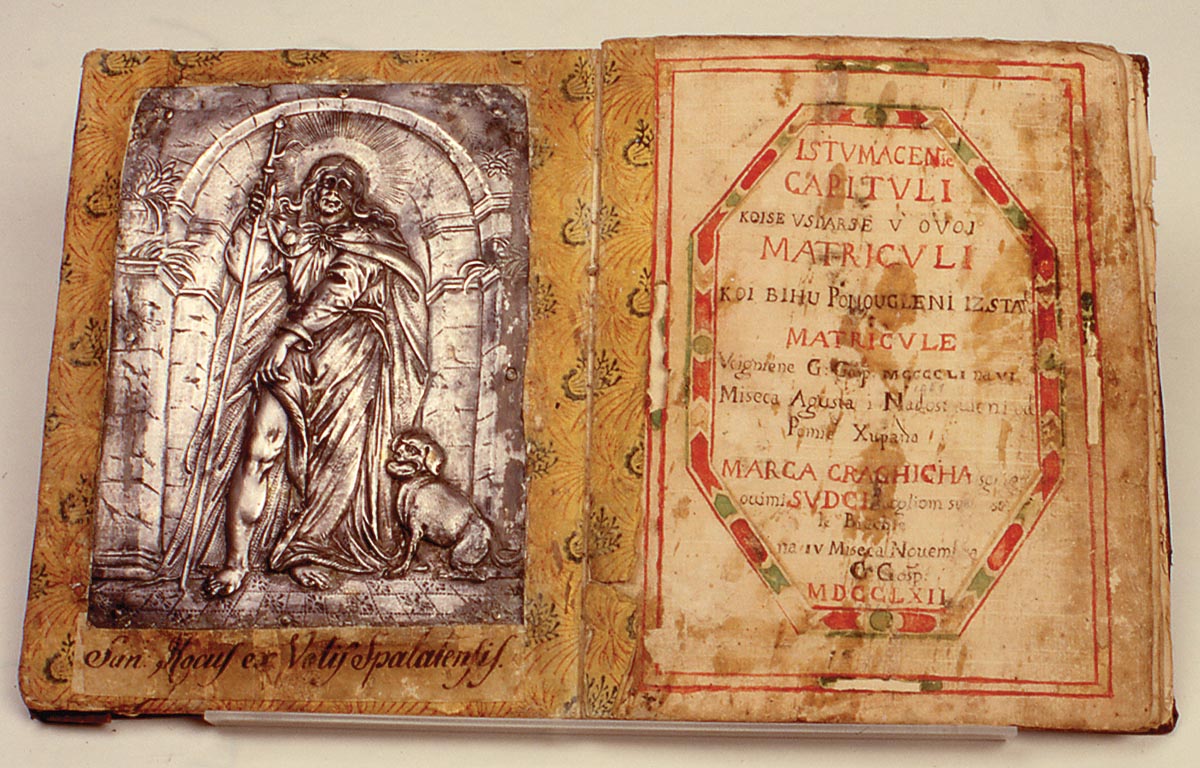 San. Rocus ex Votis Spalatensis.
ISTVMACENie
CAPITVLI
KOISE VSDARSE V OVOI
MATRICVLI
KOI BIHU PONOUGLENI IZ STA
MATRICVLE
Voigniene G. Gosp. MCCCCLI na VI
Miseca Agusta i
Pomie Xupana
MARCA CRAGHICHA
ouimi SVDCI
Bratie
na IV Miseca Novembra
G. Gosp:
MDCCLXII